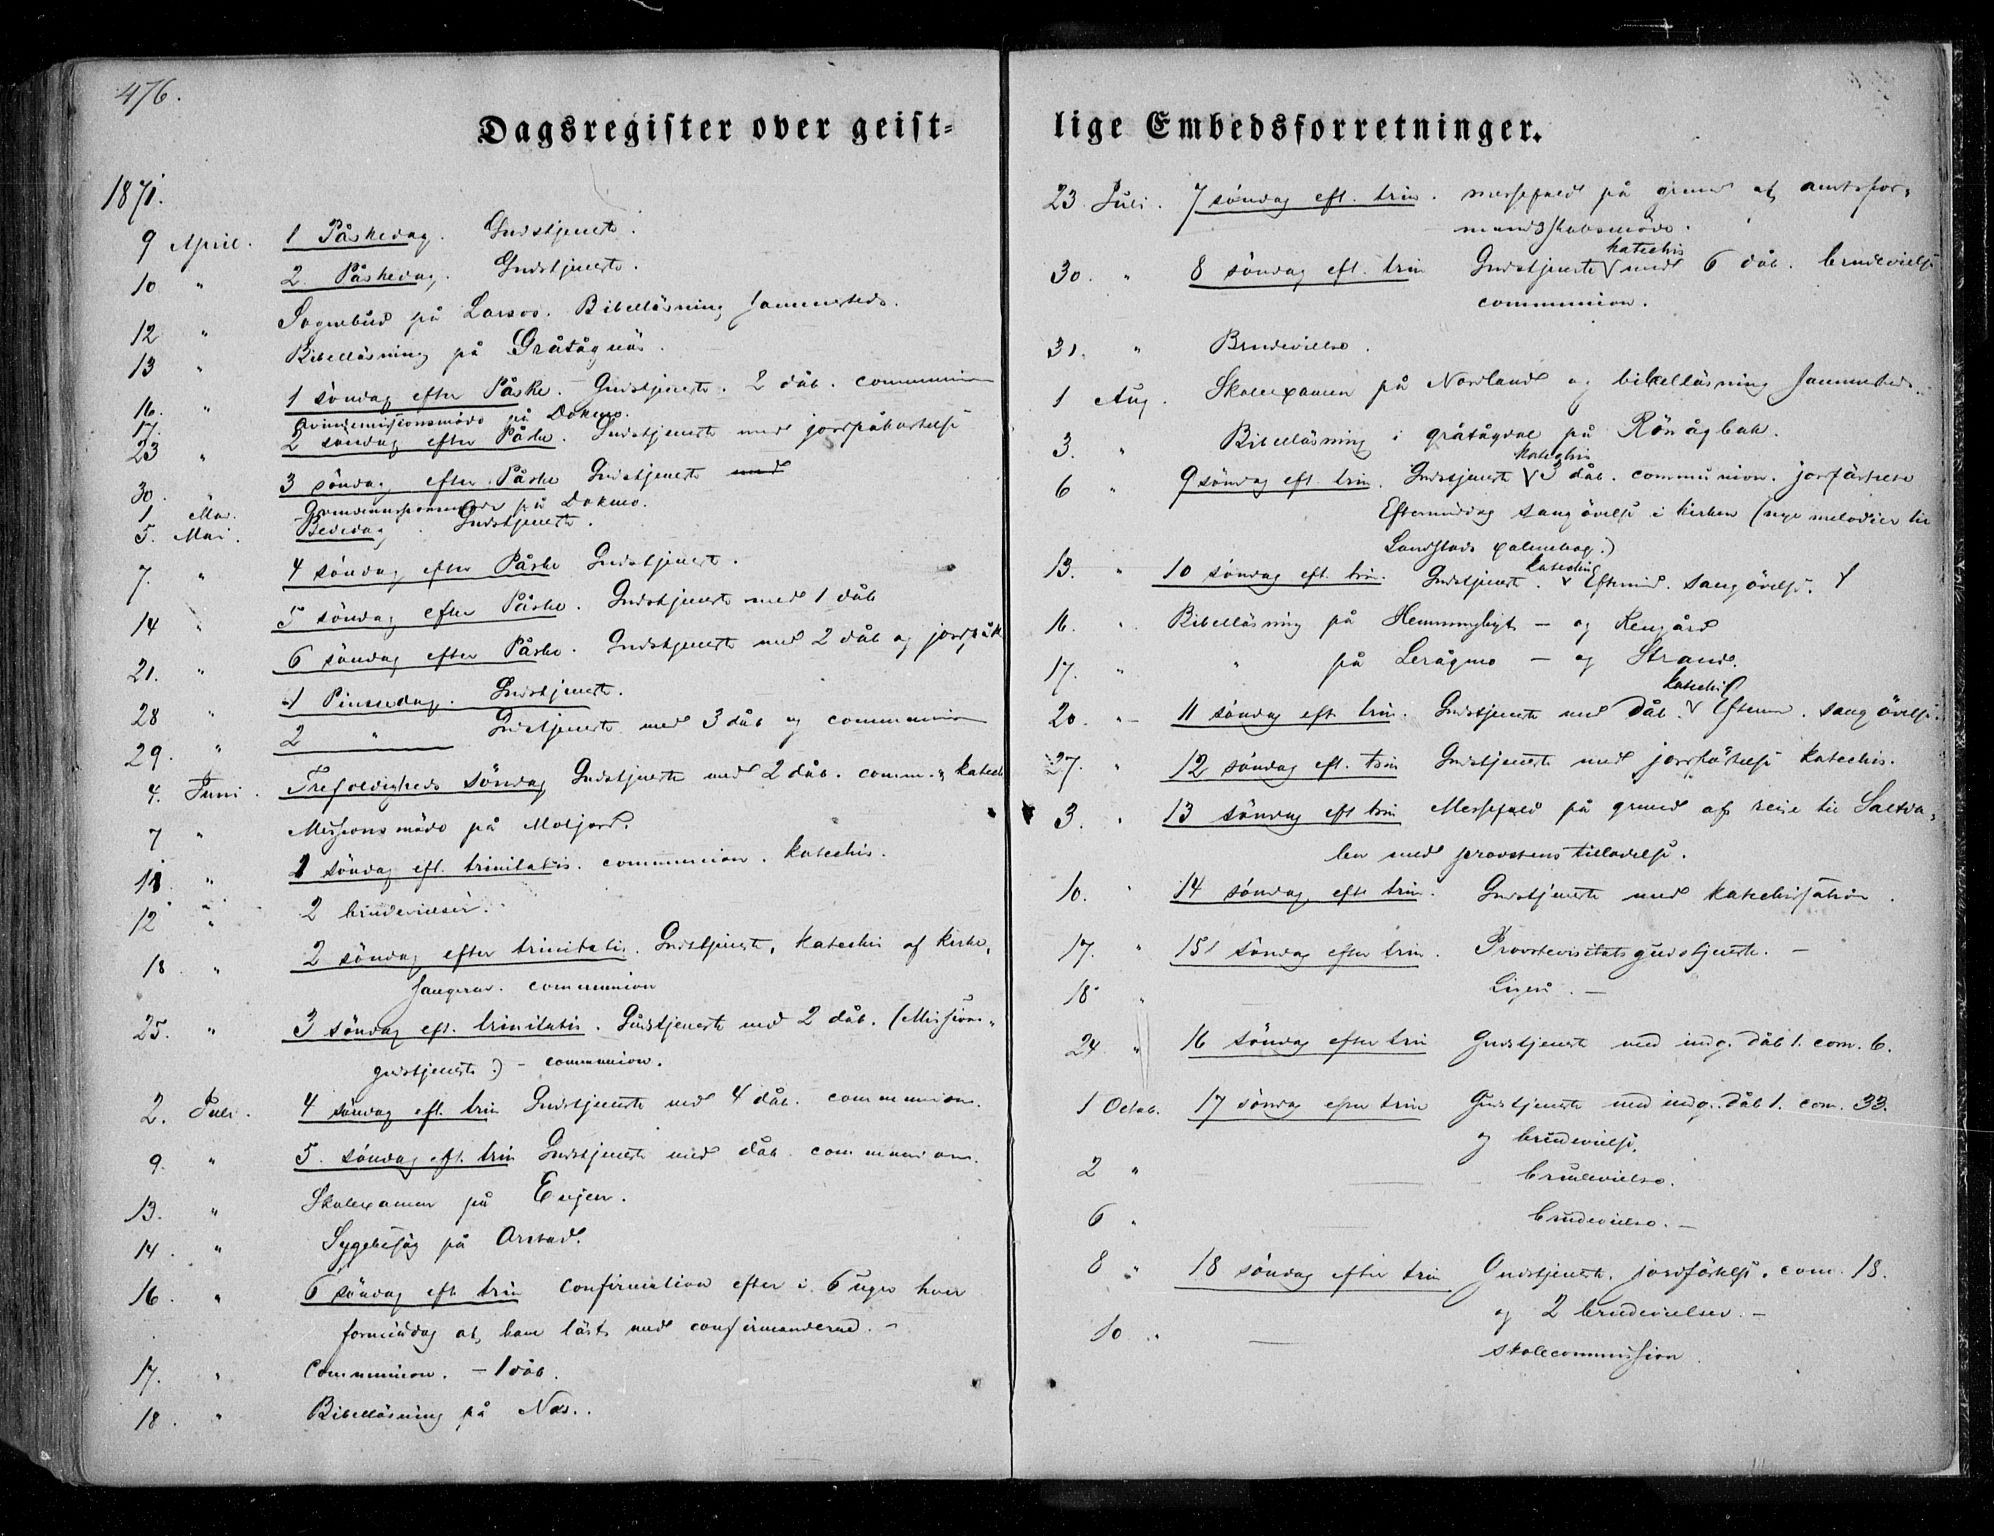 476.
Dagsregister over geist-
1871.
9 April. 1 Påskedag. Gudstjeneste.
10 " 2 Påskedag. Gudstjeneste.
12 " Sognebud på Larsos. Bibellæsning sammesteds.
13 " Bibellæsning på Gråtågnæs.
16. " 1 søndag efter Påske. Gudstjeneste. 2 dåb. communion
17. på Dokmo.
23 " 2 søndag efter Påske. Gudstjeneste med jordpåkastelse
30. " 3 søndag efter Påske Gudstjeneste med
1 Mai. på Dokmo.
5. Mai. Bededag. Gudstjeneste.
7. " 4 søndag efter Påske Gudstjeneste.
14 " 5 søndag efter Påske. Gudstjeneste med 1 dåb
21. " 6 søndag efter Påske. Gudstjeneste med 2 dåb og jordpåk
28 " 1 Pinsedag. Gudstjeneste.
29. " 2 " Gudstjeneste med 3 dåb og communion
4. Juni. Trefoldigheds søndag Gudstjeneste med 2 dåb. comm. katech
7 " Missionsmöde på Moljord.
11. " 1 søndag eft. trinitatis. communion. katechis.
12 " 2 brudevielser.
18 " 2 søndag efter trinitatis. Gudstjeneste, katechis af kirke,
sangeren. communion
25. " 3 søndag eft. trinitatis. Gudstjeneste med 2 dåb. (Missions-
gudstjeneste.) - communion.
2. Juli. 4 søndag eft. trin Gudstjeneste med 4 dåb. communion.
9. " 5. søndag eft. trin Gudstjeneste med dåb. communion.
13. " Skolexamen på Evjen.
14. " Sygebesøg på Arstad.
16. " 6 søndag eft. trin confirmation efter i 6 uger hver
formiddag at have læst med confirmanderne. -
17. " Communion. - 1 dåb.
18. " Bibellæsning på Næs.
lige Embedsforretninger.
23 Juli. 7 søndag eft. trin. messefald på grund af amtsfor-
mandskabsmöde.
katechis
30. " 8 søndag eft. trin Gudstjeneste V med 6 dåb. brudevielse
communion.
31. " Brudevielse.
1 Aug. Skolexamen på Nordland og bibellæsning sammesteds.
3. " Bibellæsning i gråtågdal på Rönågbak.
katechis
6 " 9 søndag eft. trin. Gudstjeneste V 3 dåb. communion. jordfæstelse
Eftermiddag sangövelse i kirken (nye melodier til
Landstads psalmebog.)
katechis
13. " 10 søndag eft. trin. Gudstjeneste. V Eftermid. sangövelse.
16. " Bibellæsning på Hemmingligt - og Kengård
17. " " på Lerågmo - og Strand.
katechis
20. " 11 søndag eft. trin. Gudstjeneste med dåb. V Efterm. sangövelse.
27. " 12 søndag eft. trin Gudstjeneste med jordfæstelse katechis.
3. " 13 søndag eft trin Messefald på grund af reise til Saltda-
len med provstens tilladelse.
10. " 14 søndag eft. trin. Gudstjeneste med katechisation.
17. " 15 søndag efter trin. Provstevisitatsgudstjeneste. -
18 " Ligeså. -
24 " 16 søndag efter trin Gudstjeneste med indg. dåb 1. com. 6.
1 Octob. 17 søndag efter trin Gudstjeneste med indg. dåb 1. com. 33.
og brudevielse.
2 " brudevielse.
6 " brudevielse. -
8 " 18 søndag efter trin Gudstjeneste. jordfæstelse. com. 18.
og 2 brudevielser. -
10 " skolecommission.